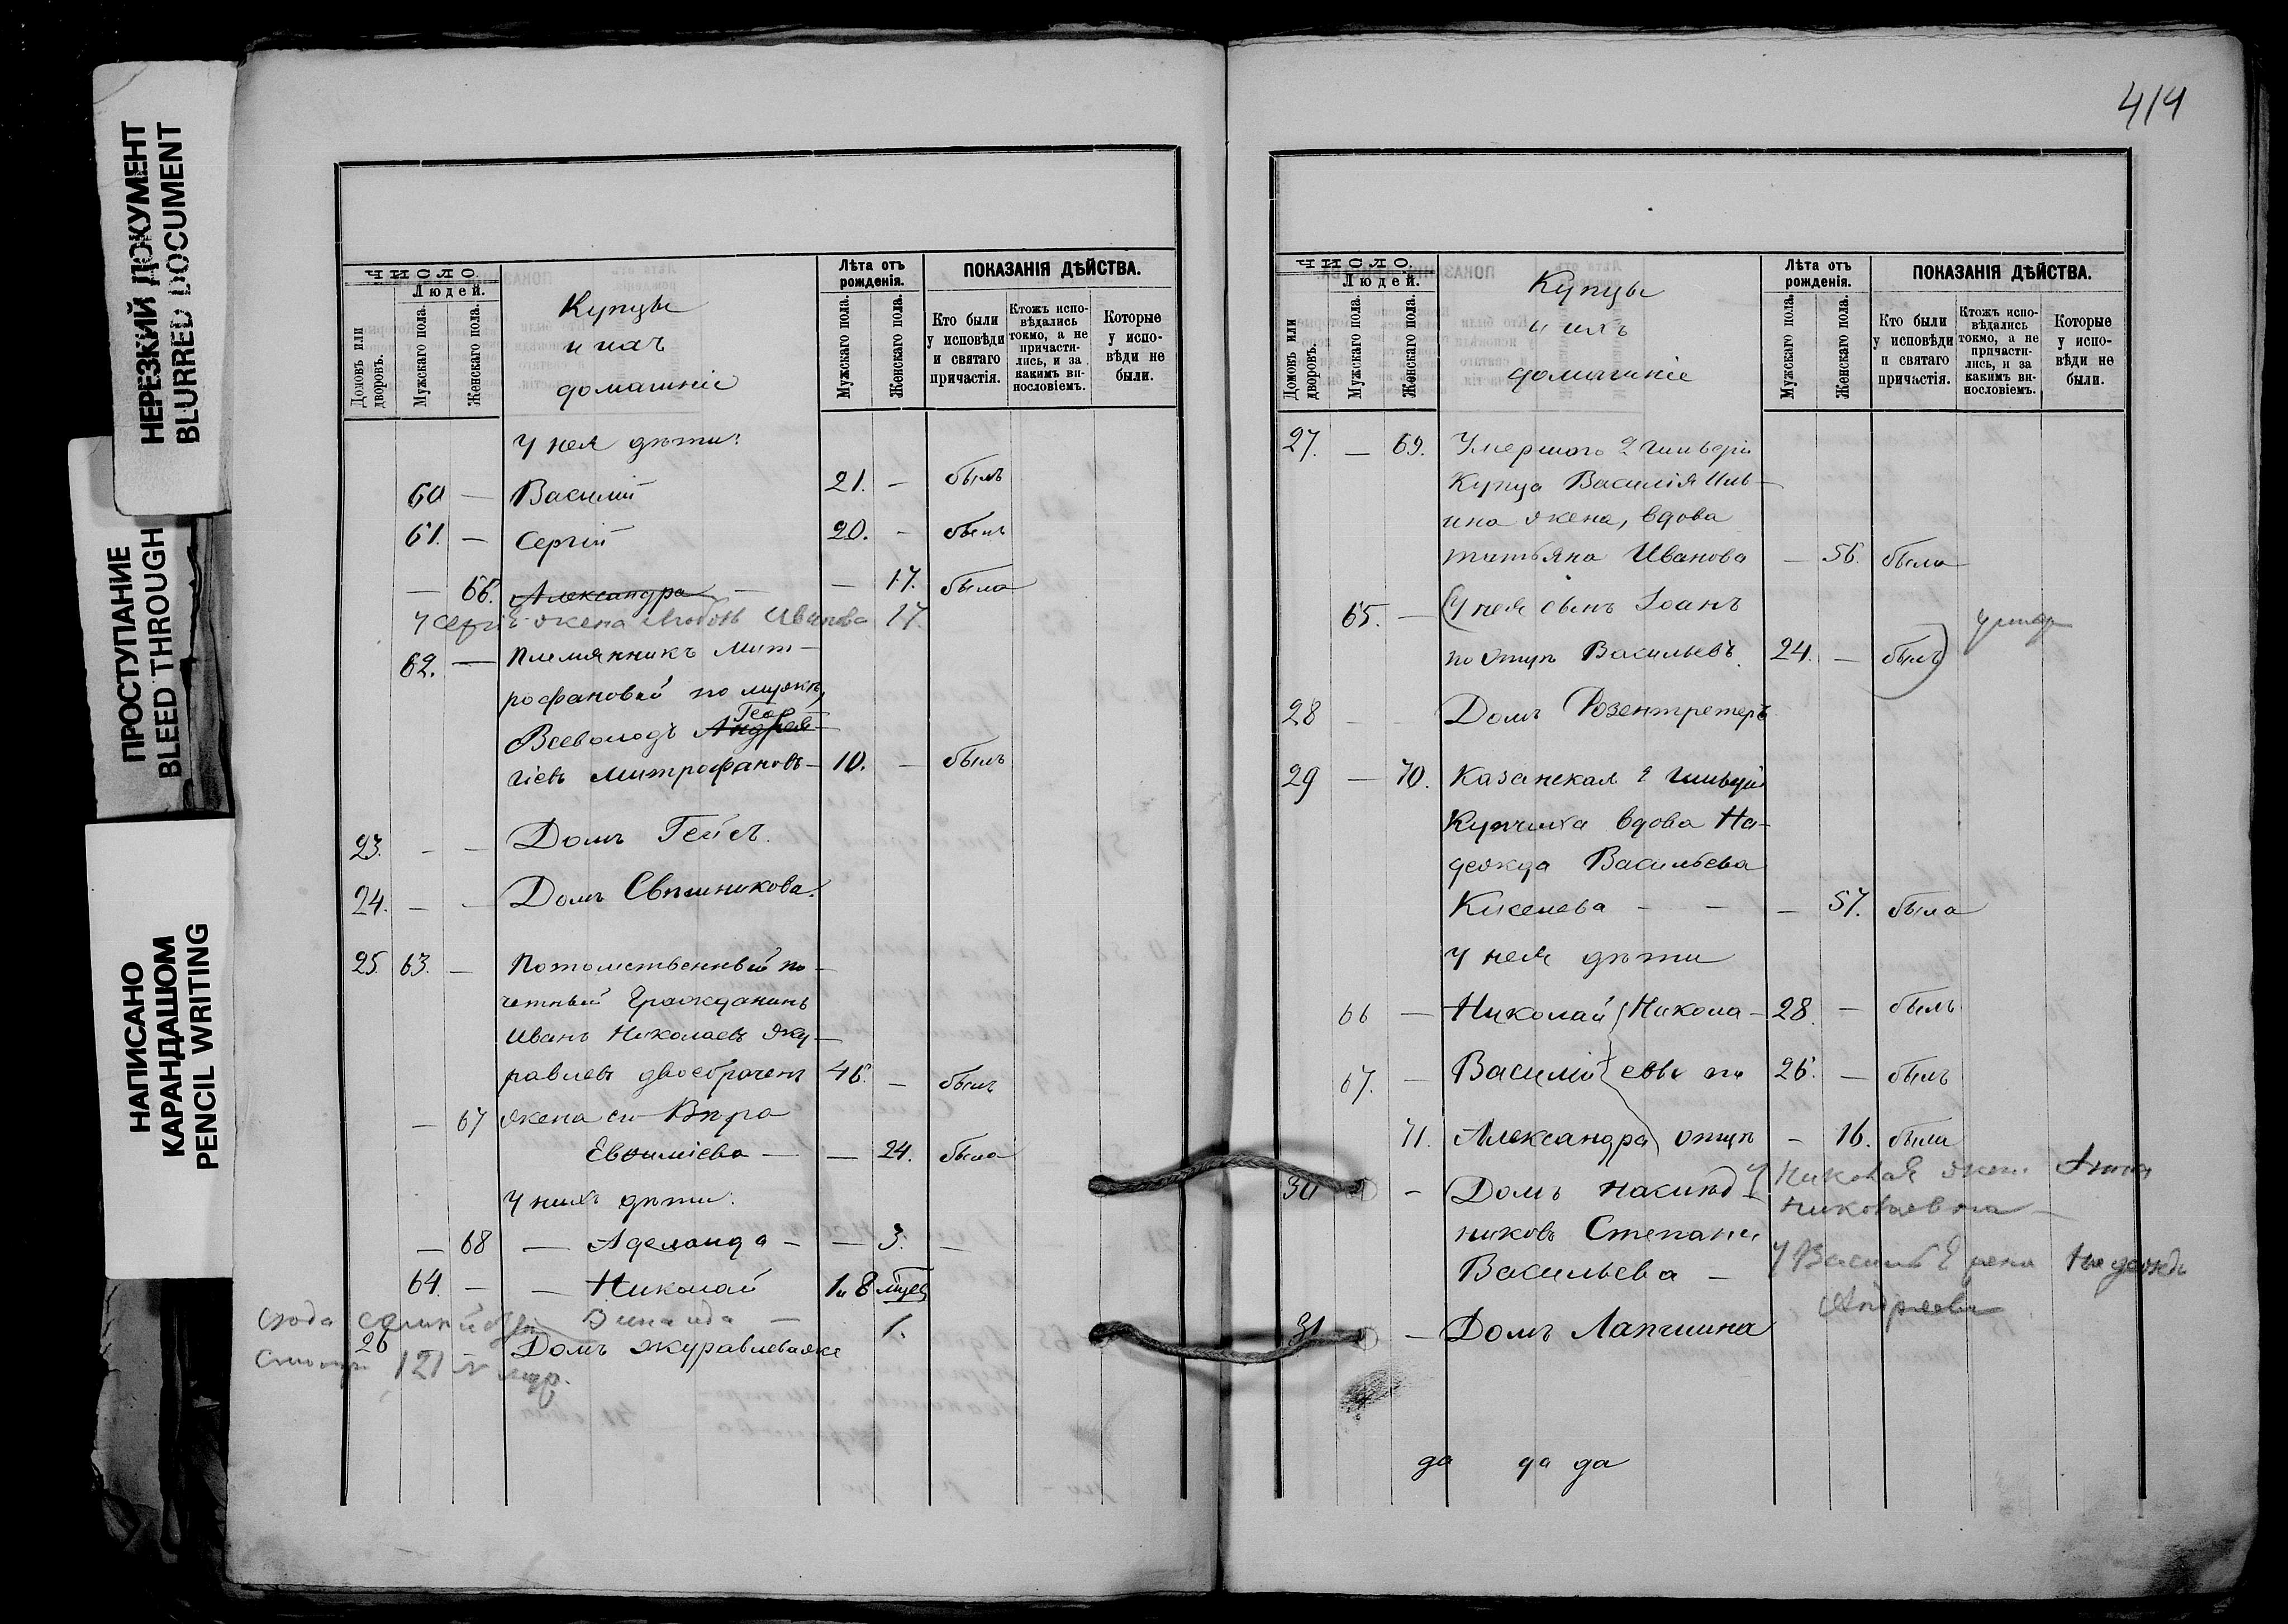 НЕРЕЗКИЙ ДОКУМЕНТ
BLURRED DOCUMENT
ПРОСТУПАНИЕ
BLEED THROUGH
НАПИСАНО
КАРАНДАШОМ
PENCIL WRITING
ЧИСЛО.
Людей.
Домовъ или дворовъ.
Мужскаго пола.
Женскаго пола.
Купцы
и ихъ
домашніе
Лѣта отъ рожденія.
Мужскаго пола.
Женскаго пола.
ПОКАЗАНІЯ ДѢЙСТВА.
Кто были у исповѣди и святаго причастія.
Ктожъ исповѣдались токмо, а не причастились, и за какимъ винословіемъ.
Которые у исповѣди не были.
У нея дѣти:
60 — Василій 21. — былъ
61. — Сергій 20. — былъ
— 66. Александра — — 17. была
У Сергія жена Любовь Иванова 17.
62. — Племянникъ Мит-
рофановой по мужѣ,
Геор
Всеволодъ Андрея-
гіевъ Митрофановъ — 10. — былъ
23. — — Домъ Гейсъ.
24. — — Домъ Свѣшникова.
25. 63. — Потомственный по-
четный Гражданинъ
Иванъ Николаевъ Жу-
равлевъ двоебраченъ 46. — былъ
— 67 жена его Вѣра
Евѳиміева — — 24. была
У нихъ дѣти:
— 68 — Аделаида — — 3. —
64. — — Николай 1 и 8 мцев
сюда Зинаида — 1.
26 Домъ Журавлева же
121
414
ЧИСЛО.
Людей.
Домовъ или дворовъ.
Мужскаго пола.
Женскаго пола.
Купцы
и ихъ
домашніе
Лѣта отъ рожденія.
Мужскаго пола.
Женскаго пола.
ПОКАЗАНІЯ ДѢЙСТВА.
Кто были у исповѣди и святаго причастія.
Ктожъ исповѣдались токмо, а не причастились, и за какимъ винословіемъ.
Которые у исповѣди не были.
27. — 69. Умершаго 2 гильдіи
Купца Василія Иль-
ина жена, вдова
Татьяна Иванова — 56. была
65. — (У нея сынъ Іоанъ
по отцѣ Васильевъ. 24. — былъ) умер
28 — — Домъ Розентретеръ
29 — 70. Казанская 2 гильдіи
Купчиха вдова На-
дежда Васильева
Киселева — — — 57. была
У нея дѣти
66 — Николай Никола- 28. — былъ
67. — Василій евы по 26. — былъ
71. Александра отцѣ — 16. была
30 — Домъ наслѣд- У Николая жена Анна
никовъ Степана Николаевна —
Васильева — У Василія жена Надежда
Андреева
31 — Домъ Лапшина
да да да